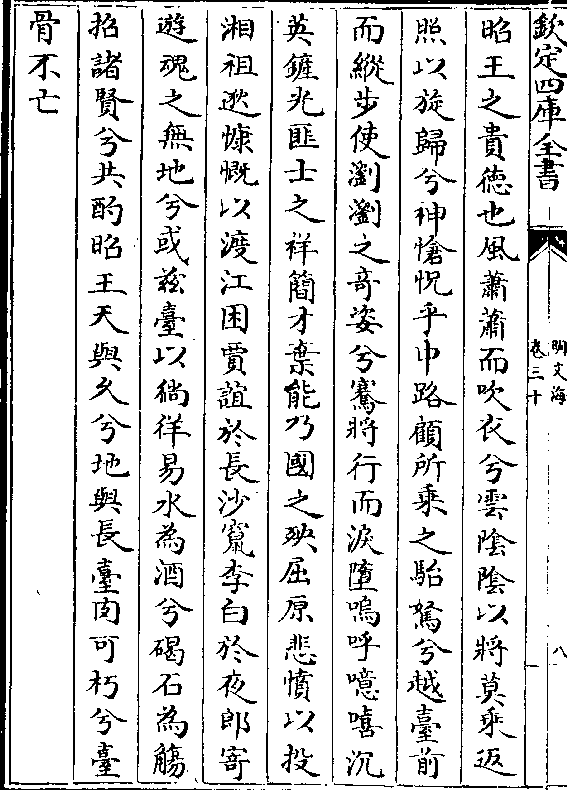 欽定四庫全書
明文海
卷三十
八
昭王之貴徳也風蕭蕭而吹衣兮雲陰陰以將莫乘返
照以旋歸兮神愴怳乎中路顧所乘之駘駑兮越臺前
而縱步使瀏瀏之奇姿兮騫將行而淚墮嗚呼噫嘻沉
英鏟光匪士之祥簡才棄能乃國之殃屈原悲憤以投
湘祖逖慷慨以渡江困賈誼於長沙竄李白於夜郎寄
遊魂之無地兮或兹臺以徜徉易水為酒兮碣石為觴
招諸賢兮共酌昭王天與久兮地與長臺肉可朽兮臺
骨不亡